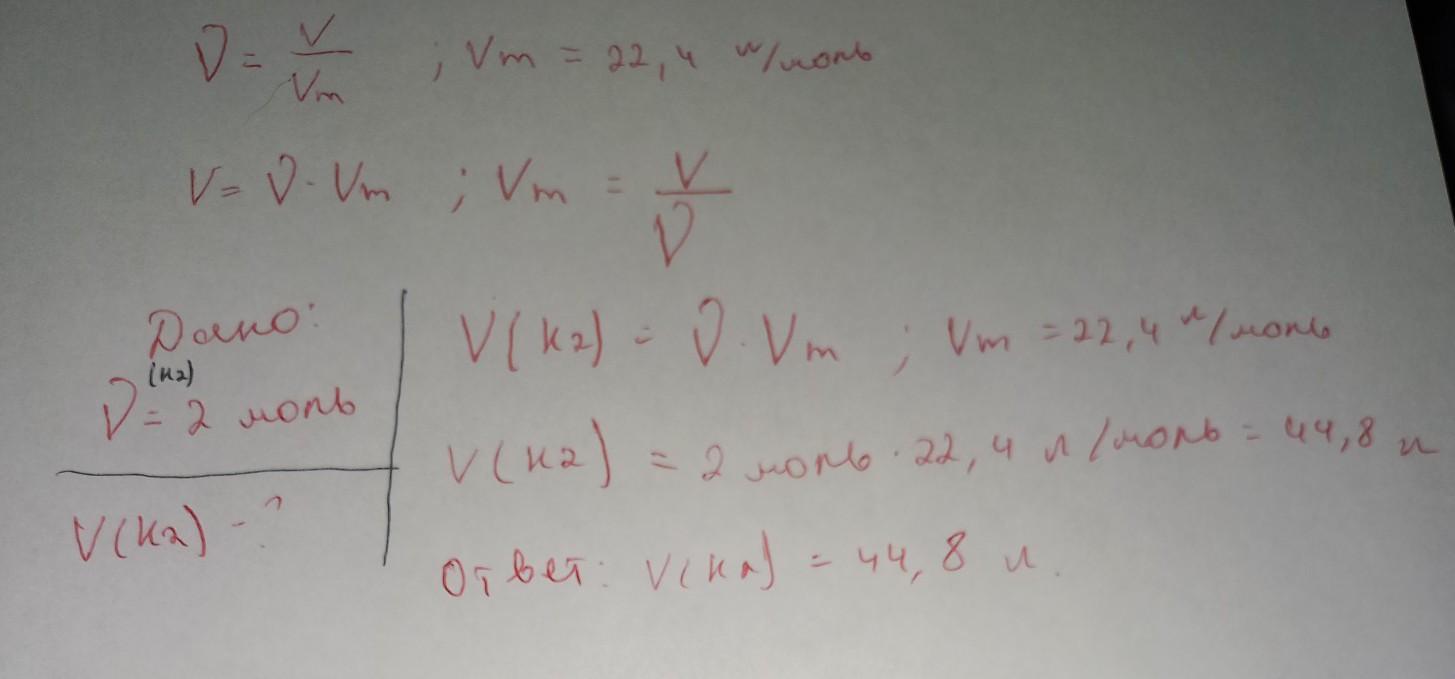 ν = V/Vm ; Vm = 22,4 л/моль
V = ν · Vm ; Vm = V/ν
Дано:
(H2)
ν = 2 моль
V(H2) - ?
V(H2) = ν · Vm ; Vm = 22,4 л/моль
V(H2) = 2 моль · 22,4 л/моль = 44,8 л
Ответ: V(H2) = 44,8 л.